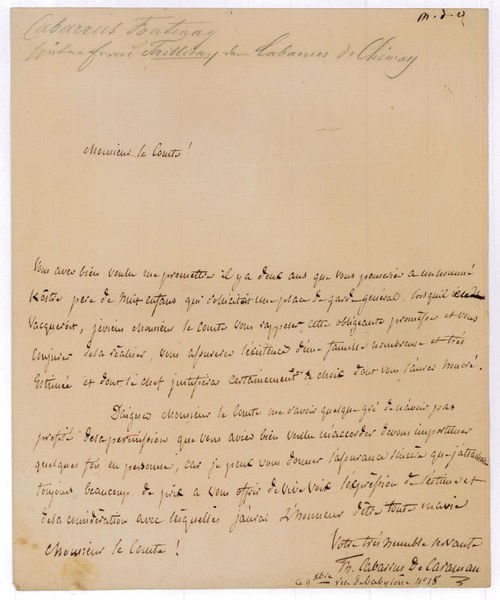 m. d. v
Cabarrus Fontenay
from Tallien, dame Cabarrus de Chimay
Monsieur le Comte!
Vous avez bien voulu me promettre il y a deux ans que vous penseriez a un nommé
père de huit enfans qui sollicitait une place de garde général, lorsqu'il
vaqueroit, je viens Monsieur le Comte vous rappeler cette obligeante promesse et vous
conjurer de la réaliser, vous assurerez l'existence d'une famille nombreuse et très
estimée et dont le chef justifiera certainement le choix dont vous l'aurez honoré.
Daignez Monsieur le Comte me savoir quelque gré de n'avoir pas
profité de la permission que vous aviez bien voulu m'accorder de vous importuner
quelques fois en personne, car je peux vous donner l'assurance sincère que j'attacherai
toujours beaucoup de prix a vous offrir de vive voix l'expression de l'estime et
de la considération avec lesquelles j'aurai l'honneur d'être toute ma vie
Monsieur le Comte!
Votre très humble servante
Th. Cabarrus De Caraman
ce 9 xbre rue de Babylone n° 18